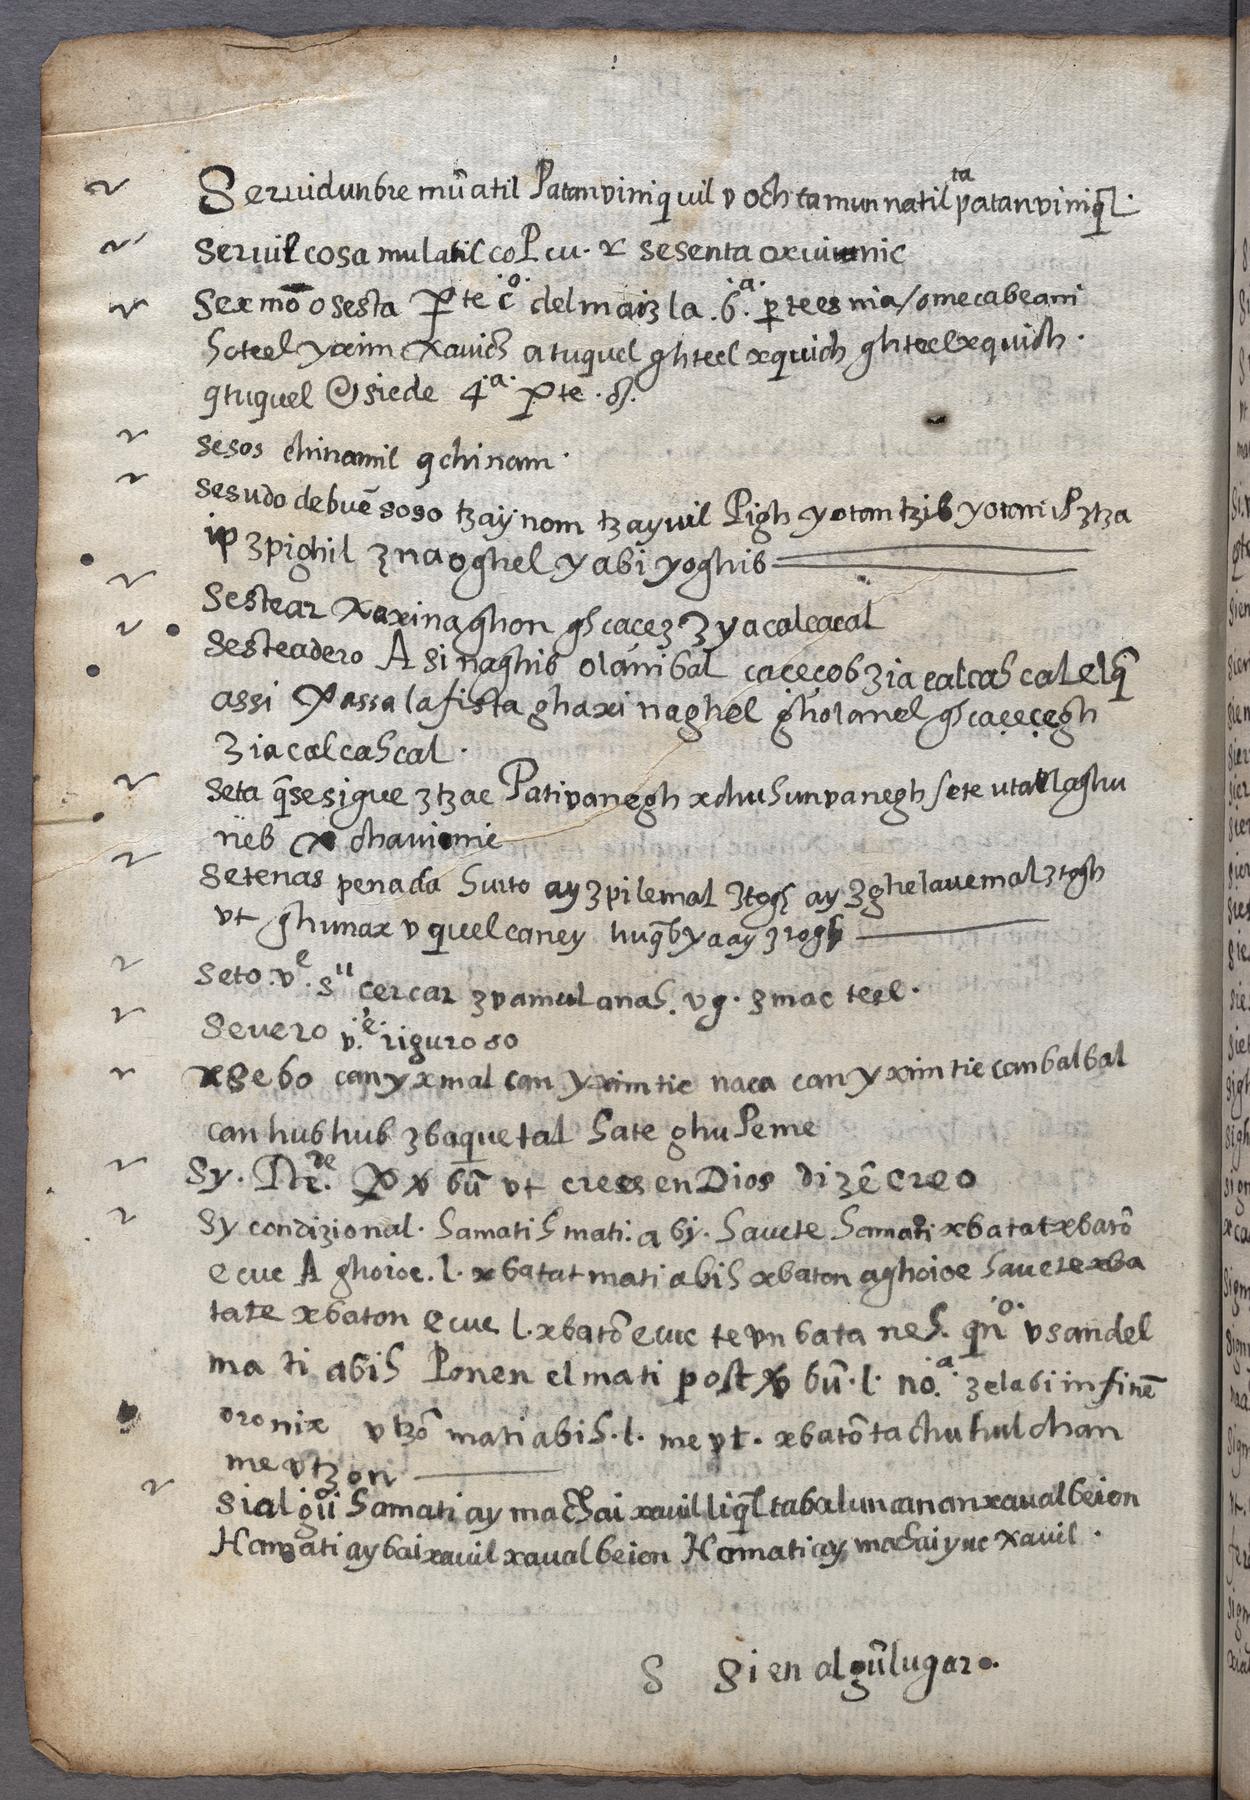 Seruidunbre mũatil Patanviniquil v och tamunnatil patanviniq̃l. ta
seruil cosa mulatil co P cu. r sesenta oxuiunic
sexmo o sesta pte c̊ del maiz la .6ª. pte es nia / omecabeani
hoteel yxim xauich atuquel ghteel xquich ghteelxquich.
qtuquel siede 4ª. pte .
sesos chinamil q chinam.
sesudo de buẽ soso tzaynom tzayuil Pigh yotan tzib yotani P ztza
ip zpighil z naoghel y abi yoghib
sestear xaxinaghon gh cacez z yacalcacal
sesteadero A si naghib olanibal caceçob zia calcah cal elq̃
assi passa la fista ghaxi naghel gholanel gh caceçegh
zia calcahcal.
seta q̃ se sigue ztzac Pativanegh xchuhunvanegh sete utallaghu
neb x chauinic
setenas penada hurto ay zpilemal ztogh ay zghelauemal ztogh
vt ghunax v quelcaney huq̃b yaay z togh
seto .vᵉ. sᵘ cercar zvamulanah. vg. zmac teel.
seuero v.ᵉ riguroso
xsebo canyxmal can yximtic naca canyximtic canbalbal
can hubhub zbaquetal hate ghu Peme
sy. bũ vt crees en Dios dizẽ creo
sy condizional. hamatih mati. a bi. hauete hamati xbatat xbatõ
ecuc A ghoioc. l. xbatat mati abih xbaton aghoioc hauete xba
tate xbaton ecuc l. xbatõ ecuc te vn bata neh. qñº. vsan del
mati abih Ponen el mati post bũ. l. noª. zelabi in finẽ
oronix vtzõ mati abih. l. me vt. xbatõ ta chuhul chan
me vtzon
si algũ hamati ay machai xauil liq̃l tabalun canan xaualbeion
Hamati aybai xauil xaualbeion Hamati ay machai yuc xauil.
S si en algũ lugar.